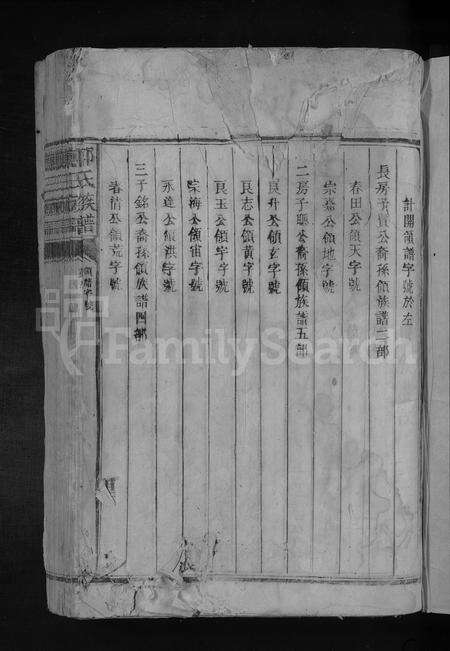 計開領譜字號於左
長房子貫公裔孫領族譜二部
春田公領天字號
宗盛公領地字號
二房子聰公裔孫領族譜五部
良升公領玄字號
良志公領黃字號
良玉公領宇字號
宗海公領宙字號
永達公領洪字號
三子銘公裔孫領族譜四部
公領荒字號
氏族譜
領譜字號
FamilySearch